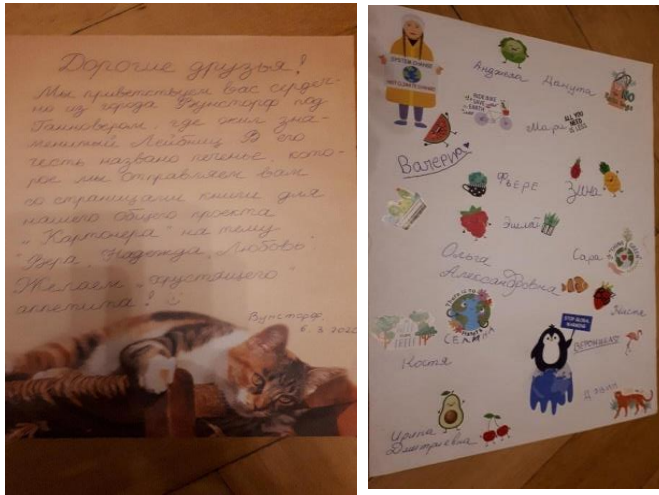 Дорогие друзья!
Мы приветствуем вас сердеч-
но из города Вунсторф под
Ганновером, где жил зна-
менитый Лейбниц. В его
честь названо печенье, кото-
рое мы отправляем вам
со страницами книги для
нашего общего проекта
"Картонера" на тему
"Вера, Надежда, Любовь".
Желаем "хрустящего"
аппетита!
Вунсторф,
6.3.202
SYSTEM CHANGE
NOT CLIMATE CHANGE
Анджела
Данута
NO
RIDE BIKE
SAVE
EARTH
Мари
ALL YOU
NEED
IS LESS
Валерия
Фьере
Зина
Эшлей
Сара
THINK
GREEN
Ольга
Александровна
Настя
There is no
STOP GLOBAL
WARMING
GREEN
СЕЛИНА
ВЕРОНИКА
Костя
Ирина
Дмитриевна